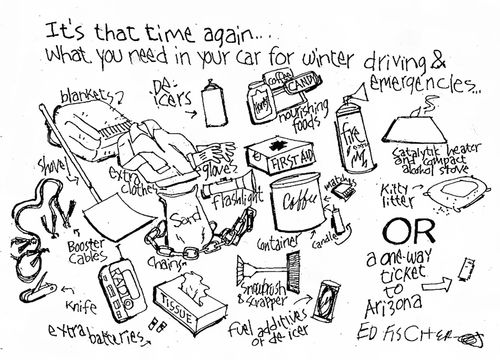 It's that time again...
What you need in your car for winter driving &
emergencies...
blankets
DE-
icers
coffee
CANDY
honey
nourishing
foods
fire
catalytic heater
and compact
alcohol stove
shovel
extra
clothes
gloves
FIRST AID
flashlight
Sand
Coffee
Matches
Kitty
litter
container
candle
OR
a one-way
ticket
to
Arizona
Booster
Cables
chains
snowbrush
& scrapper
Knife
TISSUE
extra batteries
fuel additives
or de-icer
ED FISCHER